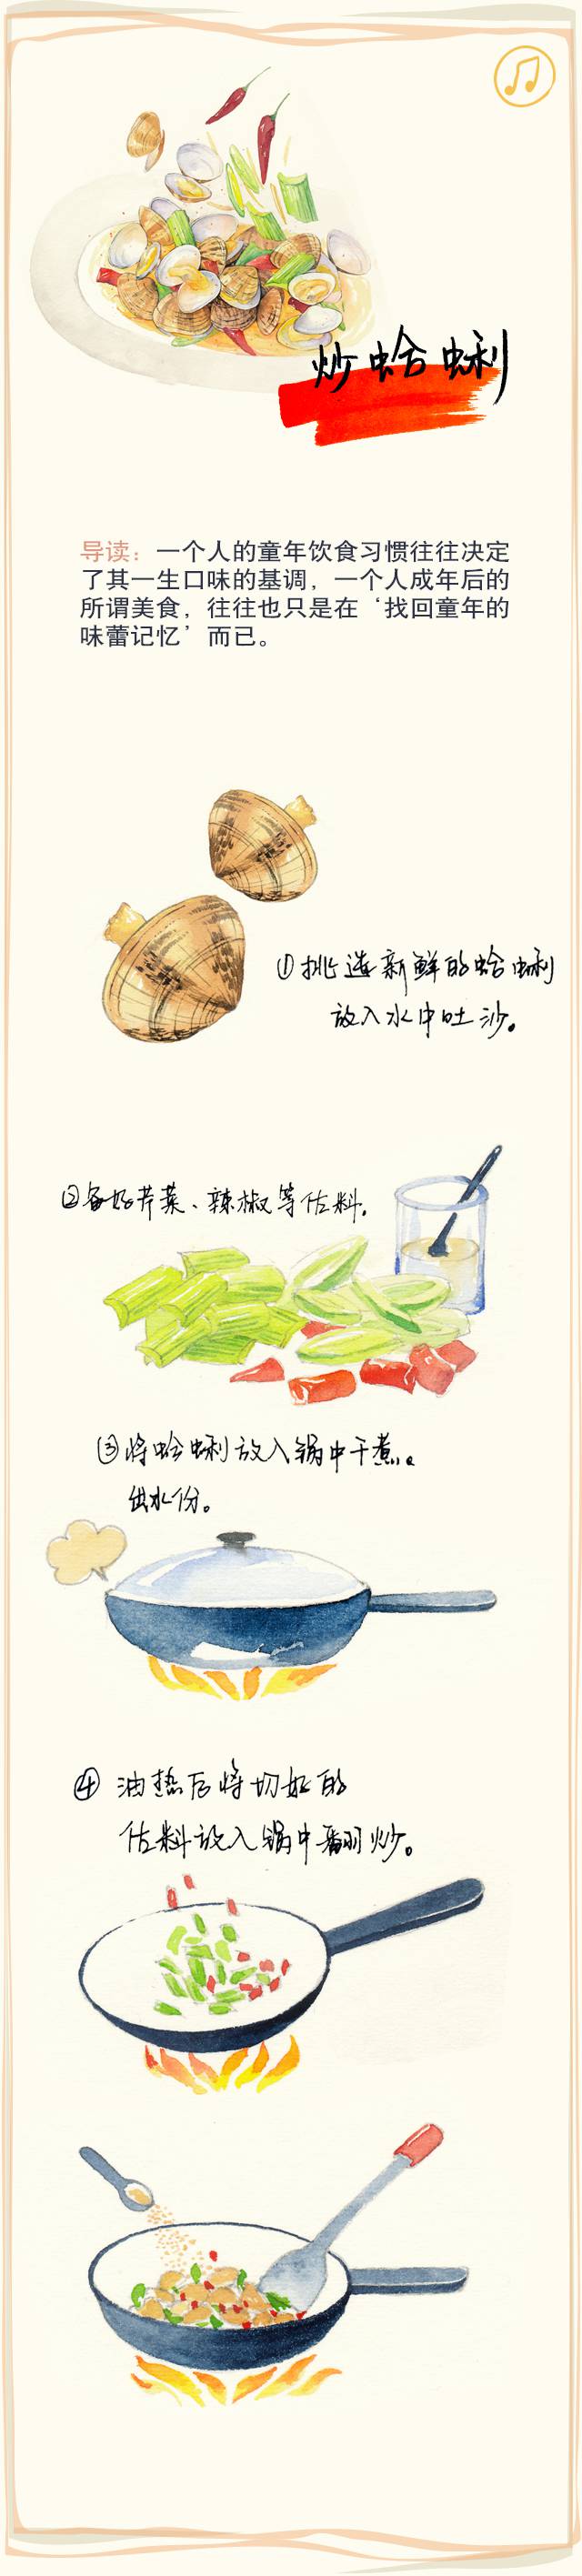 炒蛤蜊
导读：一个人的童年饮食习惯往往决定
了其一生口味的基调，一个人成年后的
所谓美食，往往也只是在‘找回童年的
味蕾记忆’而已。
①挑选新鲜的蛤蜊
放入水中吐沙。
②备好芹菜、辣椒等佐料。
③将蛤蜊放入锅中干煮。
出水份。
④油热后将切好的
佐料放入锅中翻炒。